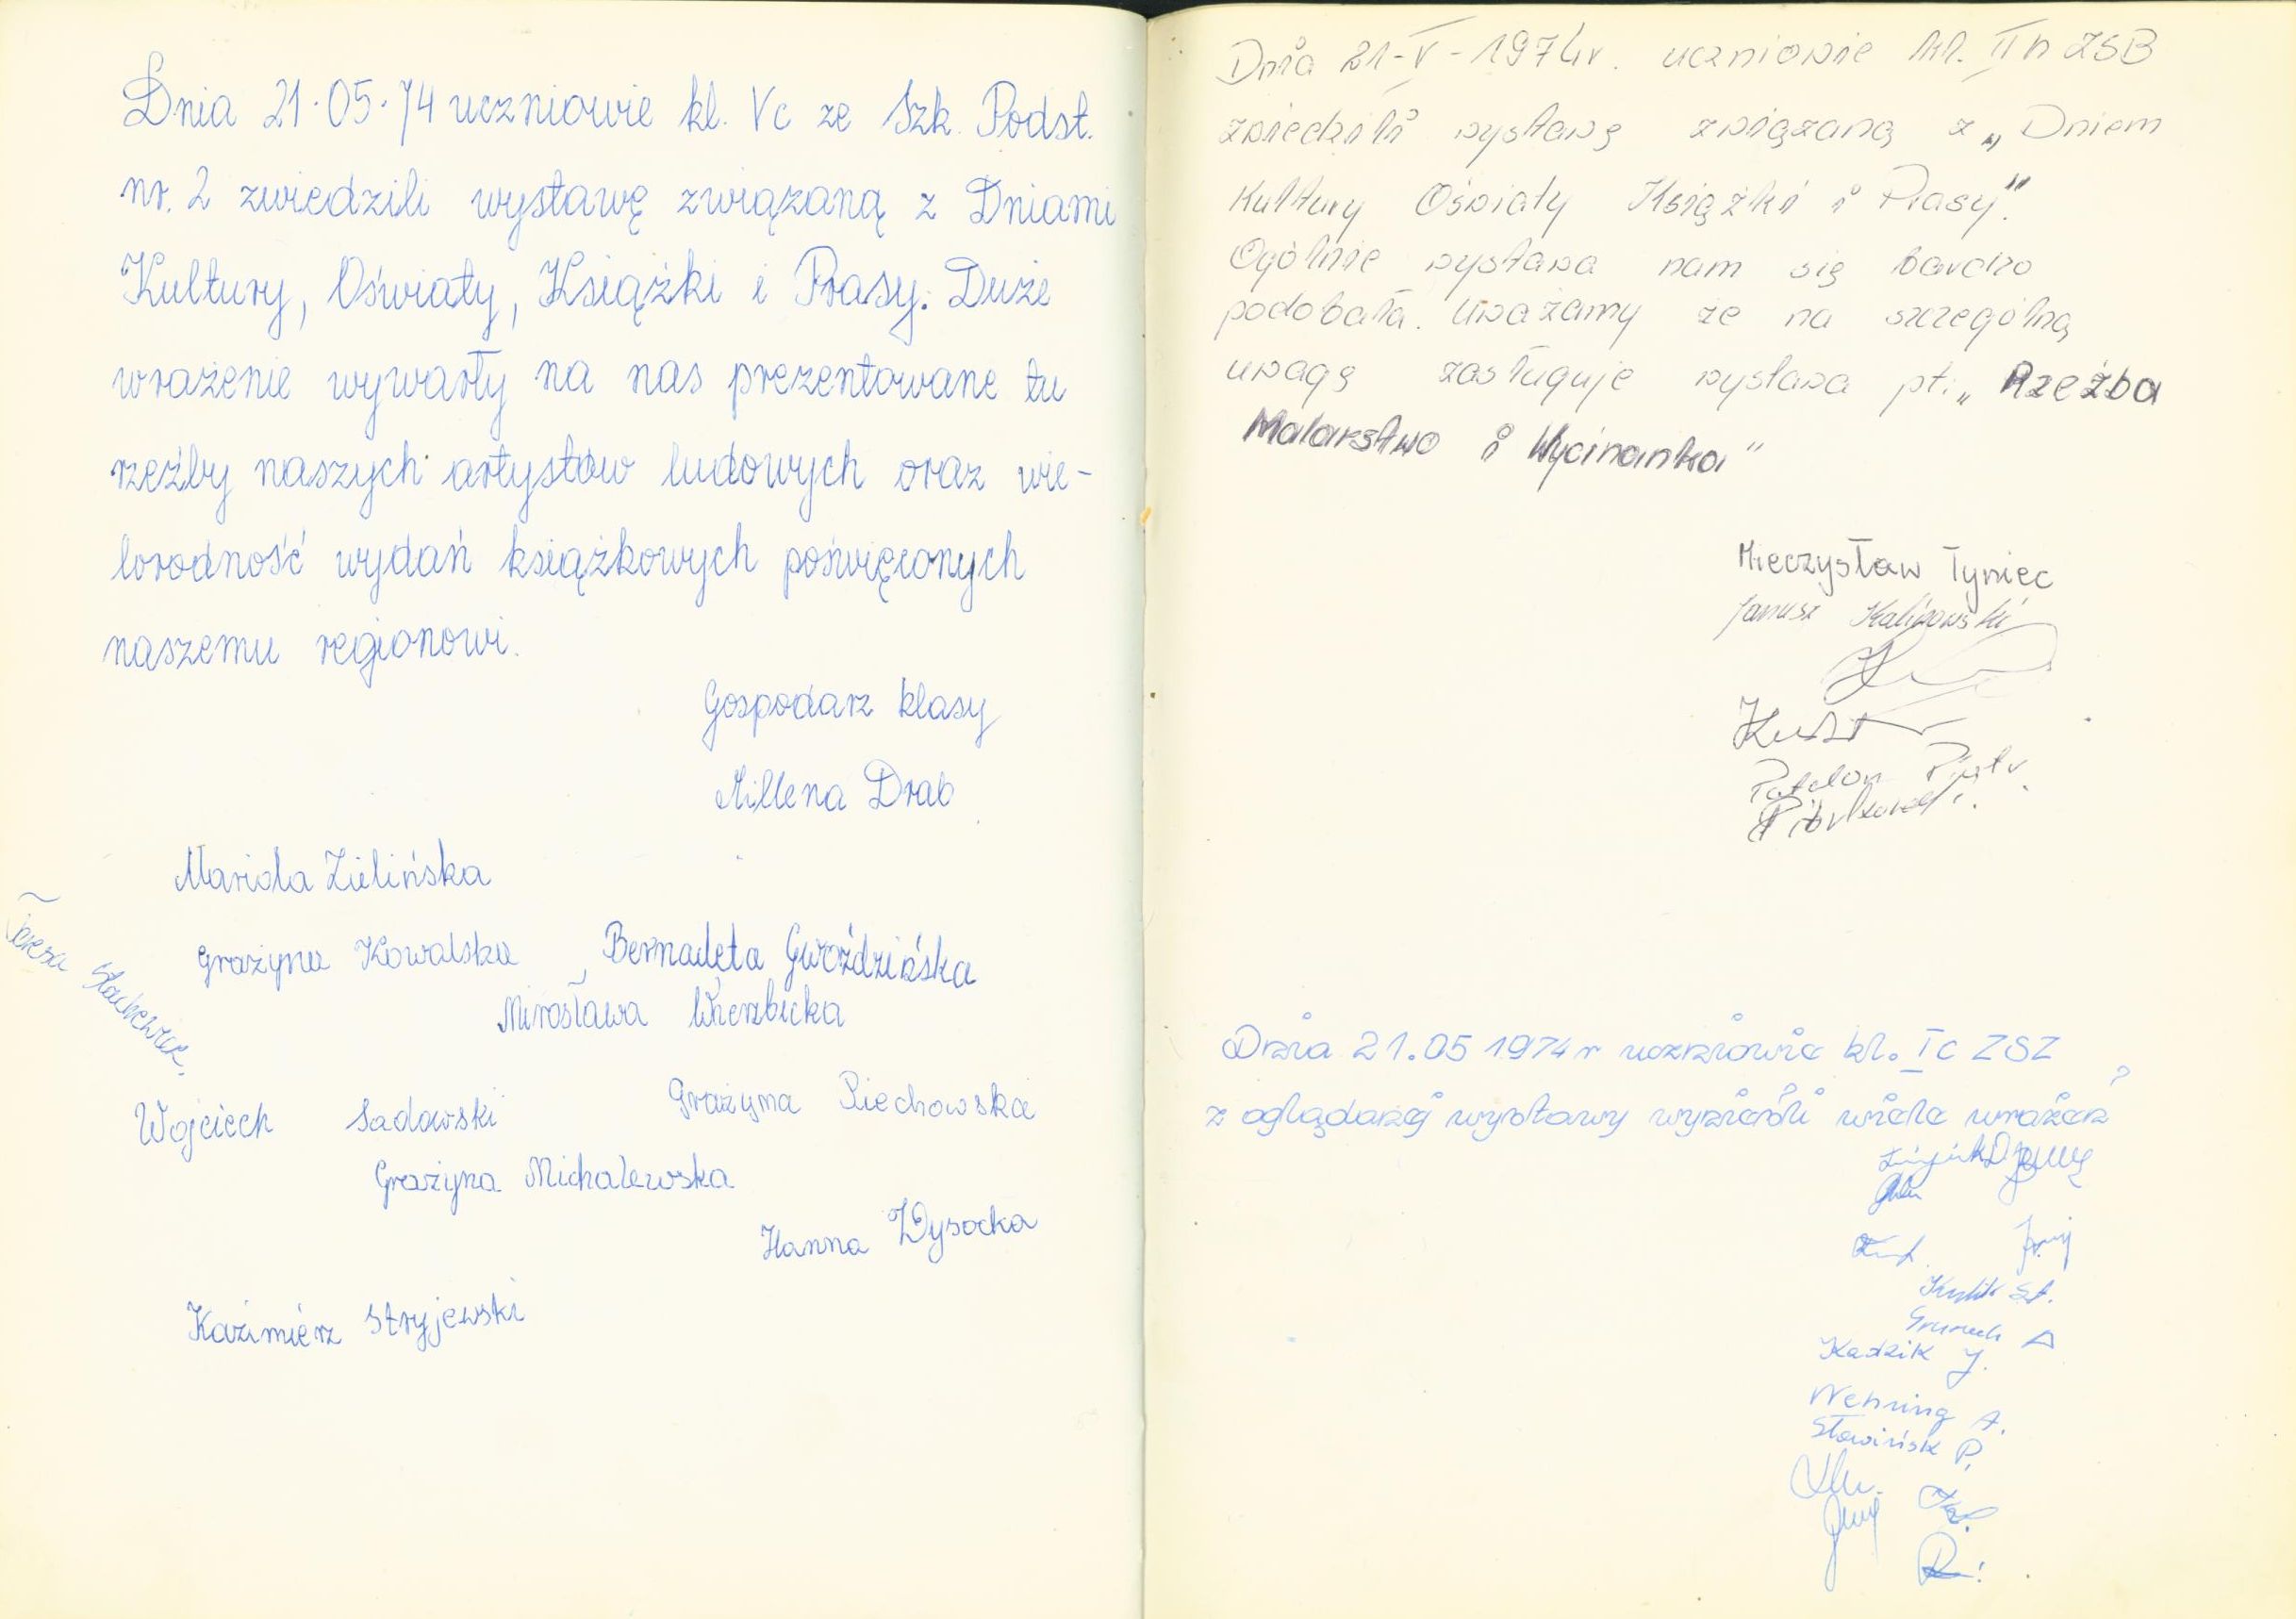 Dnia 21.05.74 uczniowie kl. Vc ze Szk. Podst.
nr. 2 zwiedzili wystawę związaną z Dniami
Kultury, Oświaty, Książki i Prasy. Duże
wrażenie wywarły na nas prezentowane tu
rzeźby naszych artystów ludowych oraz wie-
lorodność wydań książkowych poświęconych
naszemu regionowi.
Gospodarz klasy
Millena Drab
Mariola Zielińska
Grażyna Kowalska, Bernadeta Gwoździńska
Mirosława Wierzbicka
Teresa Stachewicz
Wojciech Sadowski Grażyna Piechowska
Grażyna Michalewska
Hanna Wysocka
Kazimierz Stryjewski
Dnia 21-V-1974r. uczniowie kl. II h ZSB
zwiedzili wystawę związaną z „Dniem
Kultury Oświaty Książki i Prasy".
Ogólnie wystawa nam się bardzo
podobała. Uważamy że na szczególną
uwagę zasługuje wystawa pt: „Rzeźba
Malarstwo i Wycinanka"
Mieczysław Tyniec
Janusz Kalinowski
Piotr
Dnia 21.05 1974 r uczniowie kl. I c ZSZ
z oglądanej wystawy wynieśli wiele wrażeń
Kulik St.
Kadzik J.
Wehning A.
Słowińsk P.